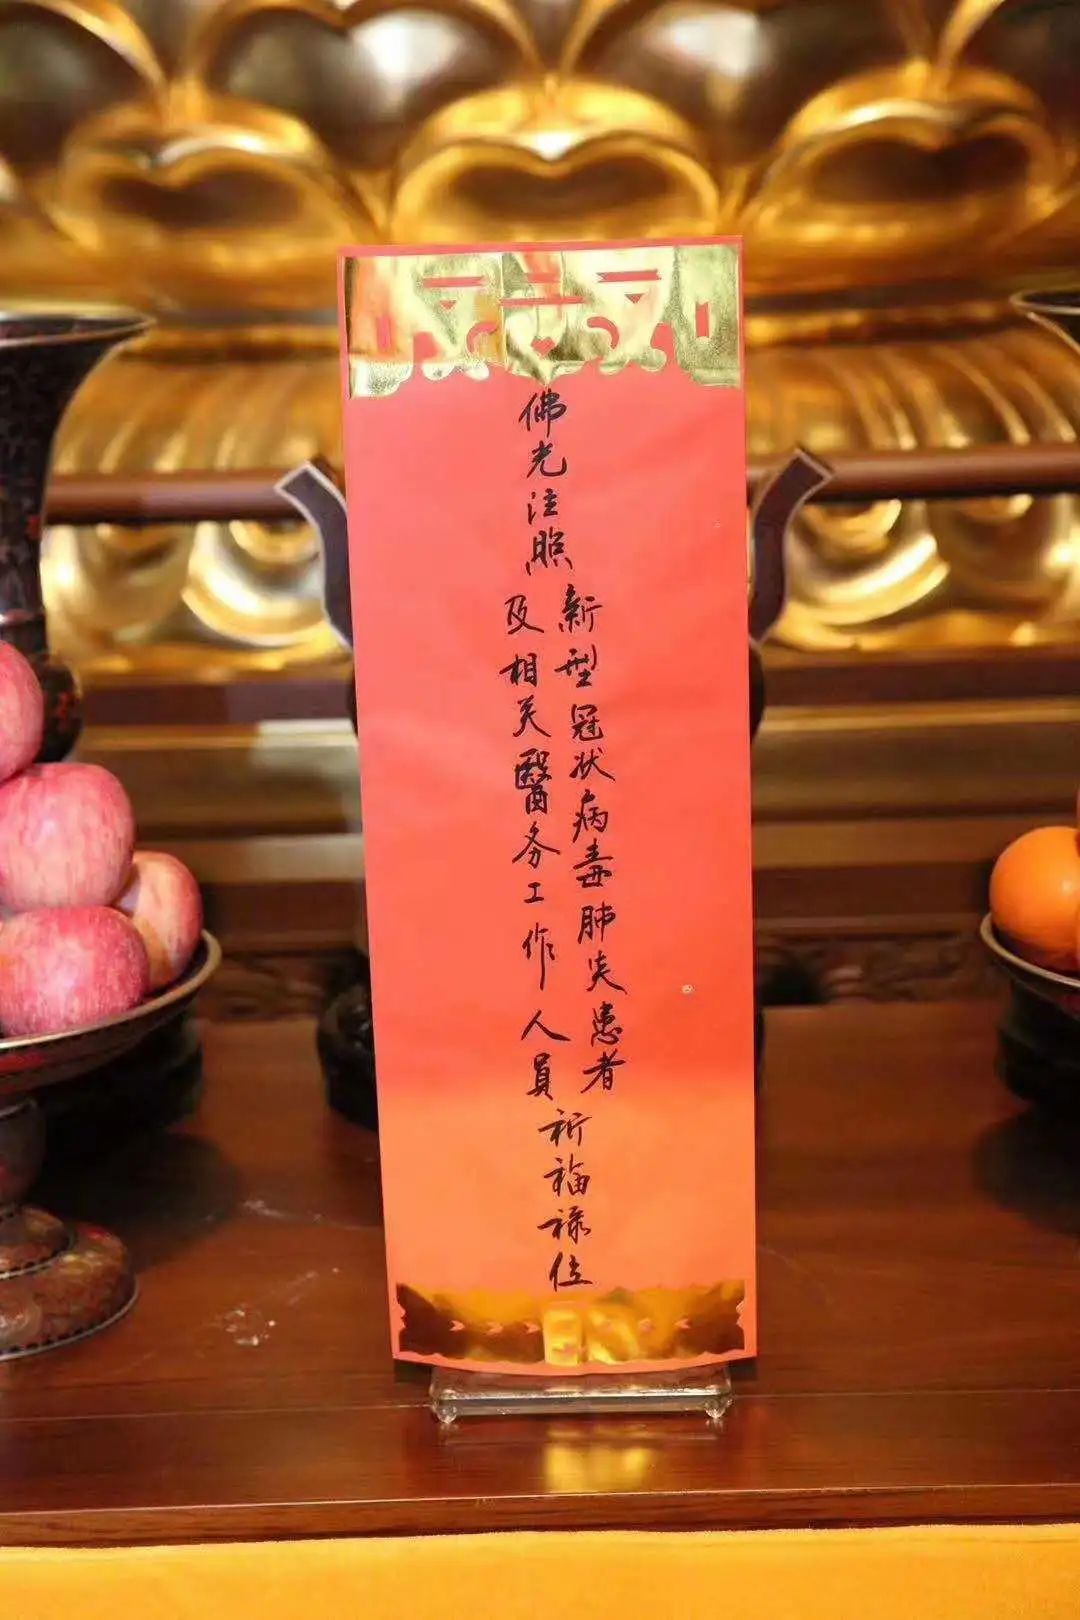 佛光注照
新型冠状病毒肺炎患者
及相关醫务工作人員
祈福禄位